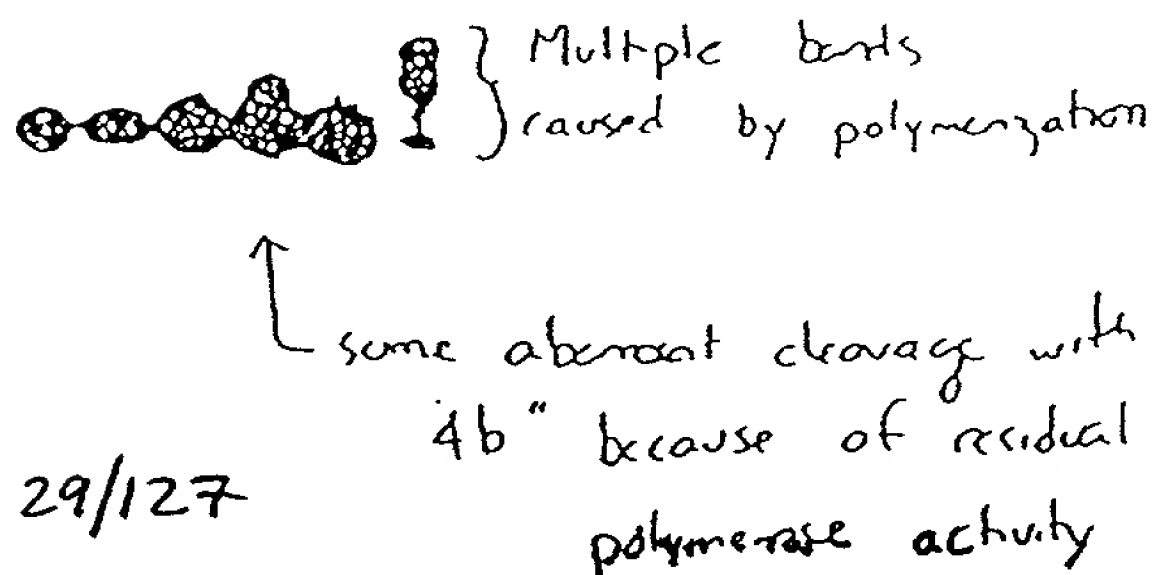 Multiple bands
caused by polymerization
some aberrant cleavage with
4b" because of residual
29/127
polymerase activity